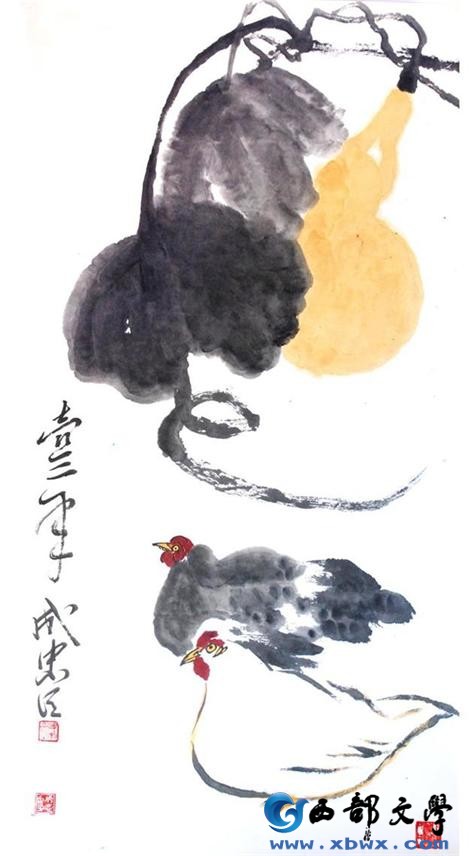 壹三年 成忠臣
西部文學
www.xbwx.com